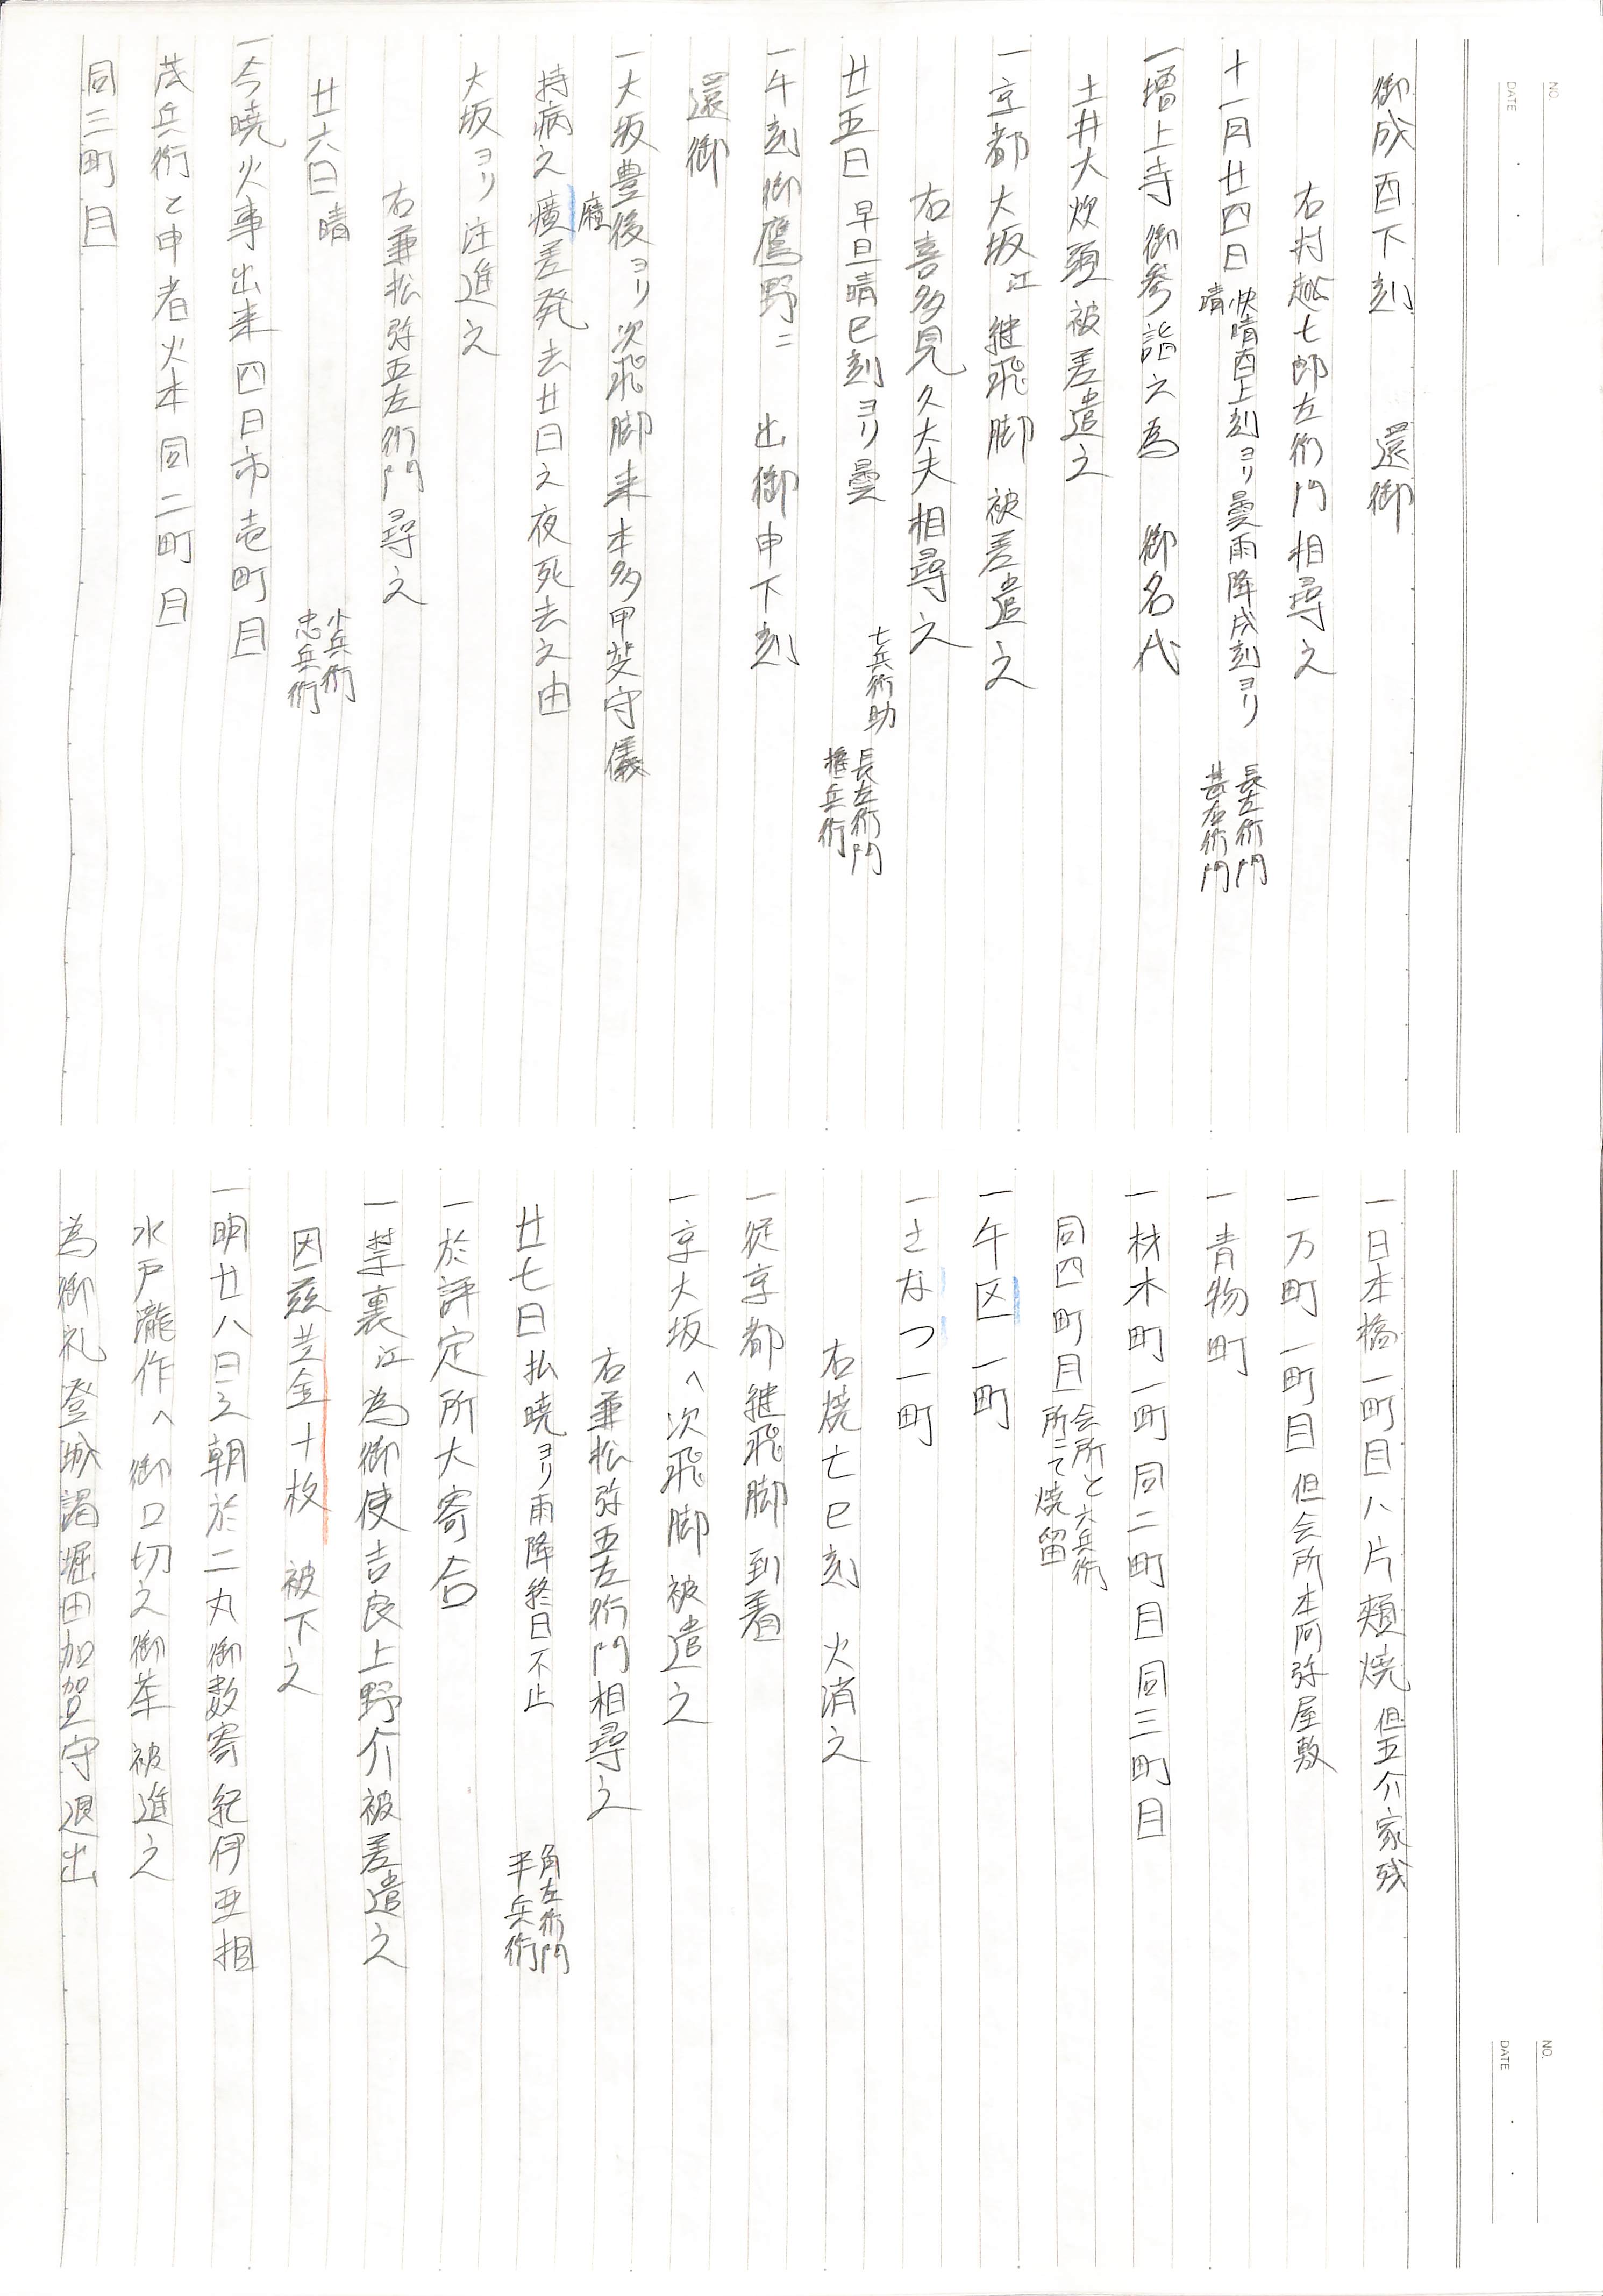 NO.
DATE
御成酉下刻　還御
右村越七郎左衛門相尋之
十一月廿四日 快晴酉上刻ヨリ曇雨降戌刻ヨリ
晴
長左衛門
甚左衛門
一増上寺御参詣之為　御名代
土井大炊頭被差遣之
一京都大坂江継飛脚被差遣之
右喜多見久大夫相尋之
廿五日 早旦晴巳刻ヨリ曇
七兵衛助
長左衛門
権兵衛
一午刻御鷹野ニ　出御申下刻
還御
一大坂豊後ヨリ次飛脚来本多甲斐守儀
持病之癪差発去廿日之夜死去之由
大坂ヨリ注進之
右兼松弥五左衛門尋之
廿六日 晴
小兵衛
忠兵衛
一今暁火事出来四日市壱町目
茂兵衛と申者火本同二町目
同三町目
NO.
DATE
一日本橋一町目ハ片頬焼 但五介家残
一万町一町目 但会所本阿弥屋敷
一青物町
一材木町一町同二町目同三町目
同四町目 会所と六兵衛
所ニて焼留
一午区一町
一さなつ一町
右焼亡巳刻　火消之
一従京都継飛脚到着
一京大坂へ次飛脚被遣之
右兼松弥五左衛門相尋之
廿七日 払暁ヨリ雨降終日不止
角左衛門
半兵衛
一於評定所大寄合
一禁裏江為御使吉良上野介被差遣之
因茲黄金十枚　被下之
一明廿八日之朝於二丸御数寄紀伊亜相
水戸瀧作へ御口切之御茶被進之
為御礼登城謁堀田加賀守退出